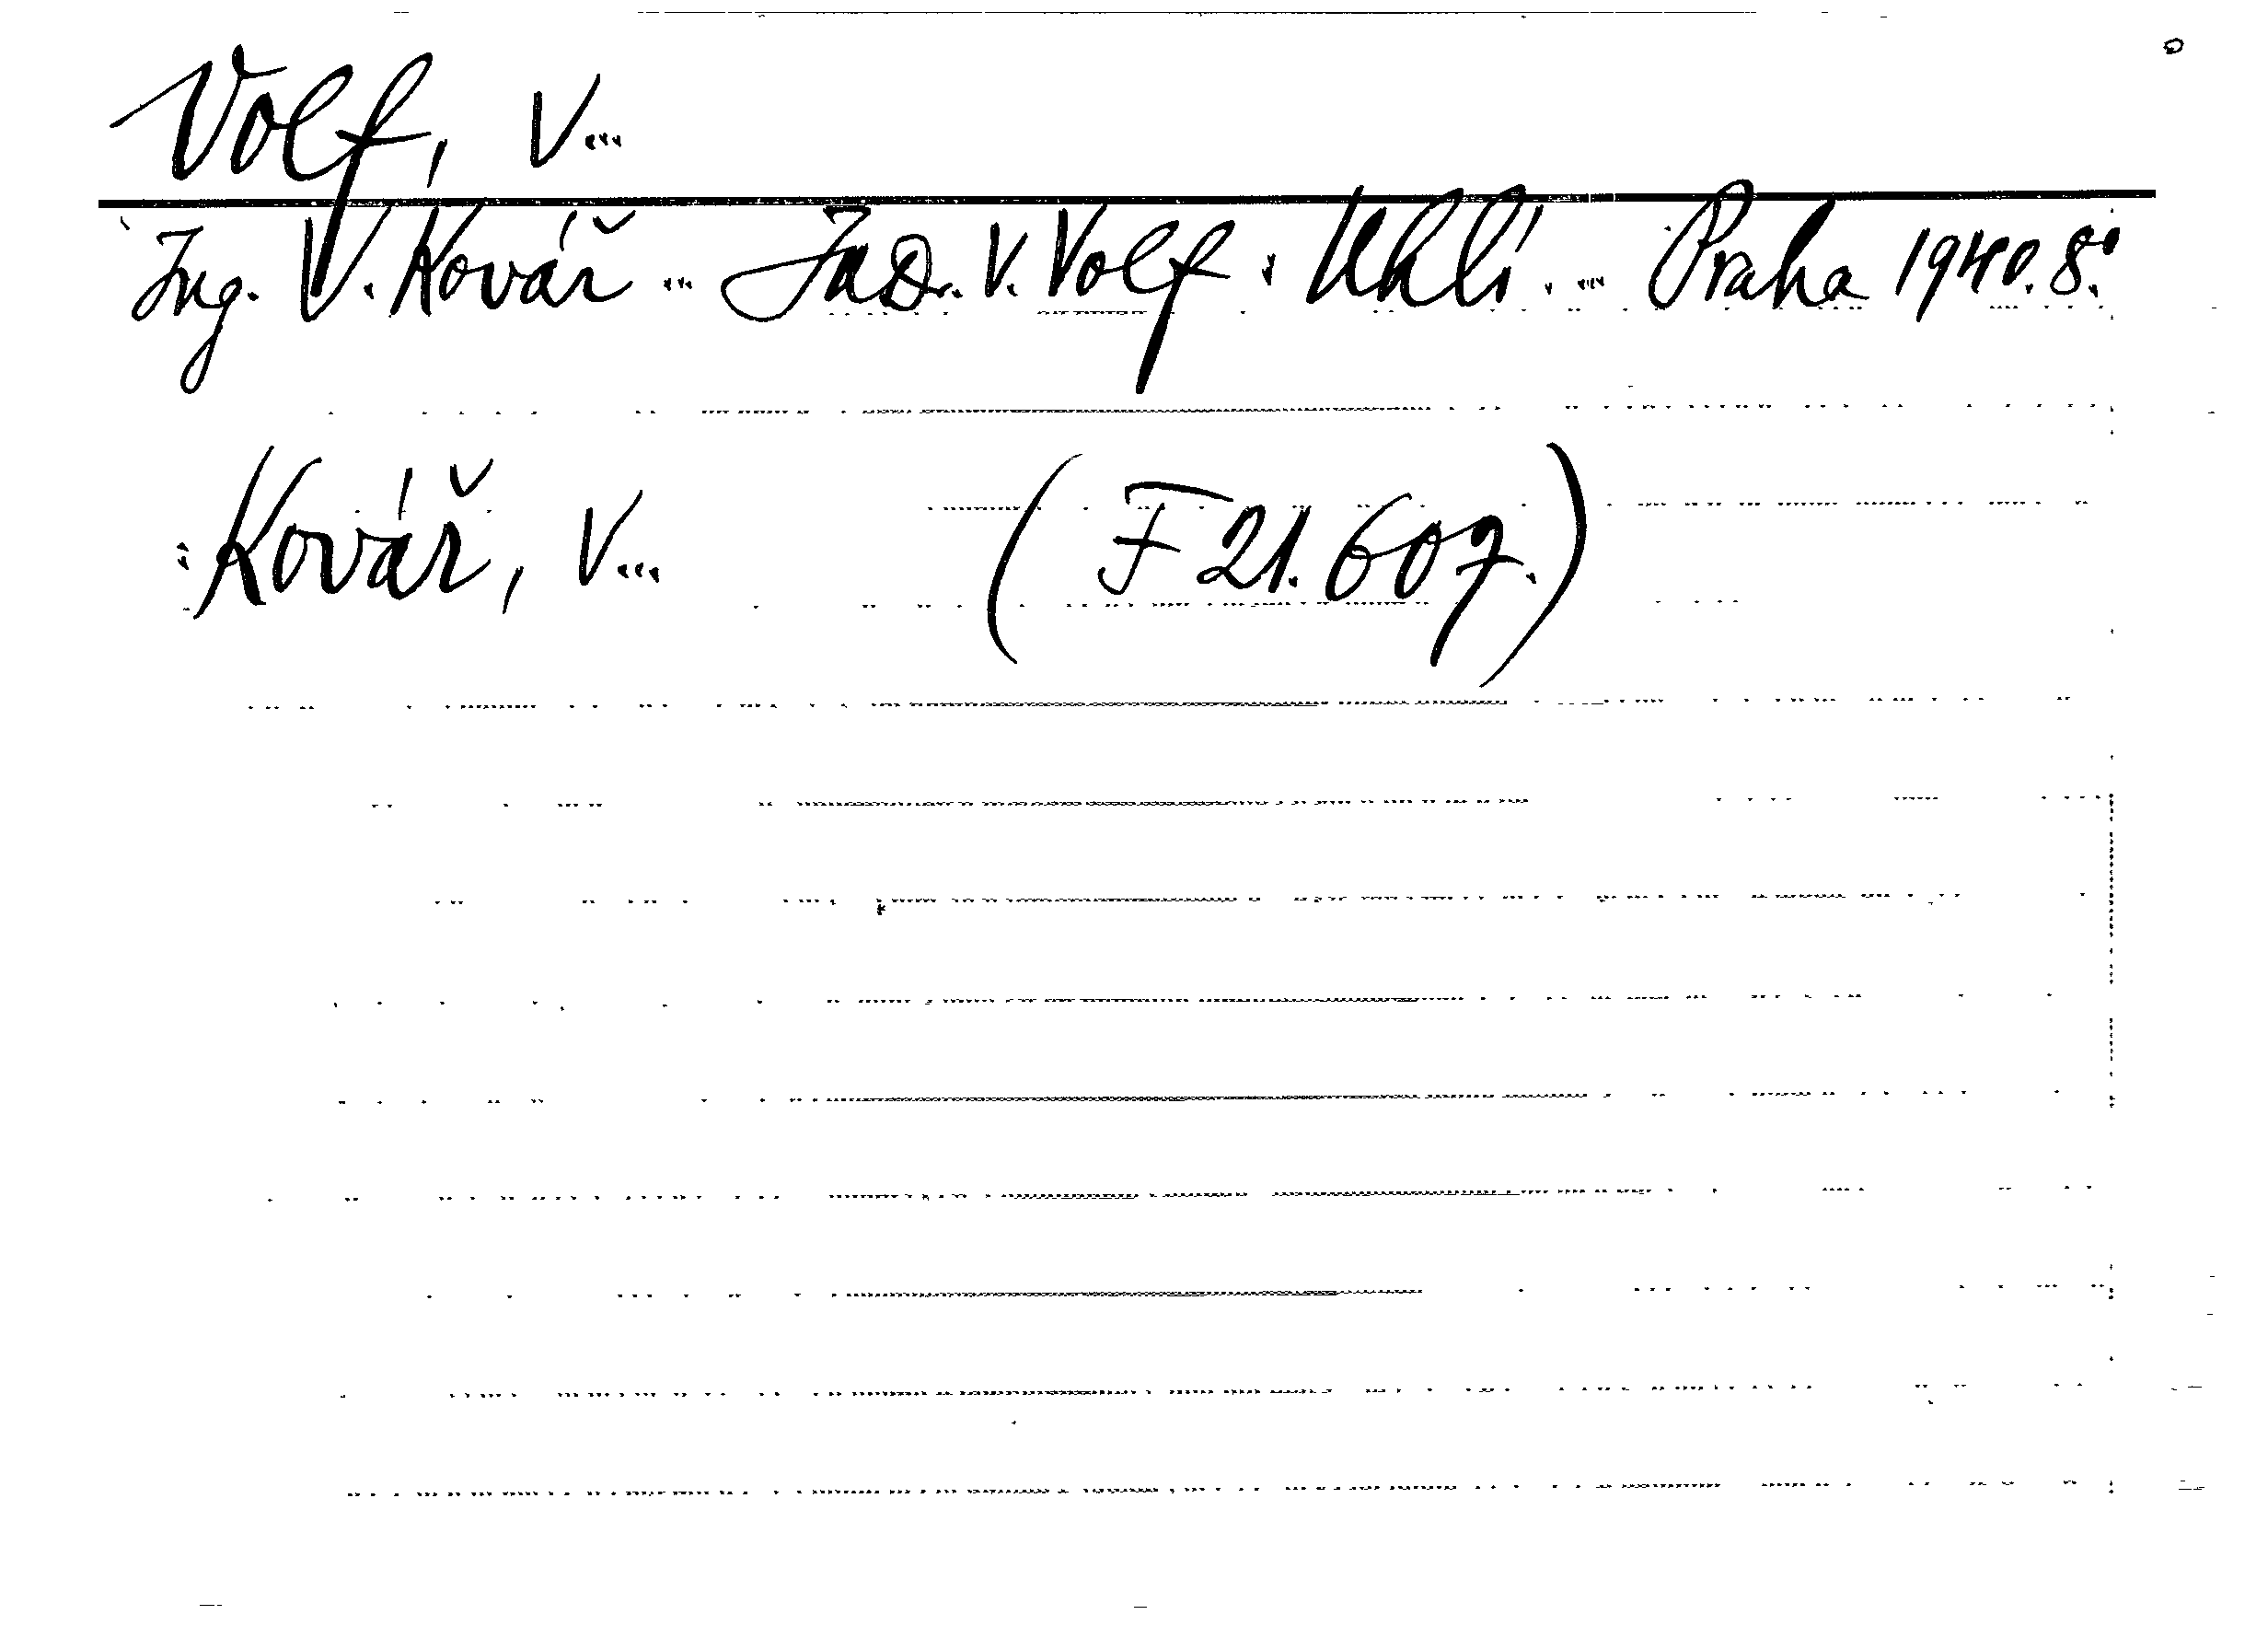 Volf, V...
Ing. V. Kovář ... JuDr. V. Volf: Uhlí. ... Praha 1940. 8°.
Kovář, V... (F 21.607.)